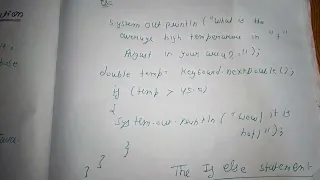 System.out.println("What is the
average high temperature in",
August in your
double temp = keyboard.nextDouble();
if (temp > 45.0)
{
System.out.println("Wow! it is
hot)");
}
} }
The If else statement